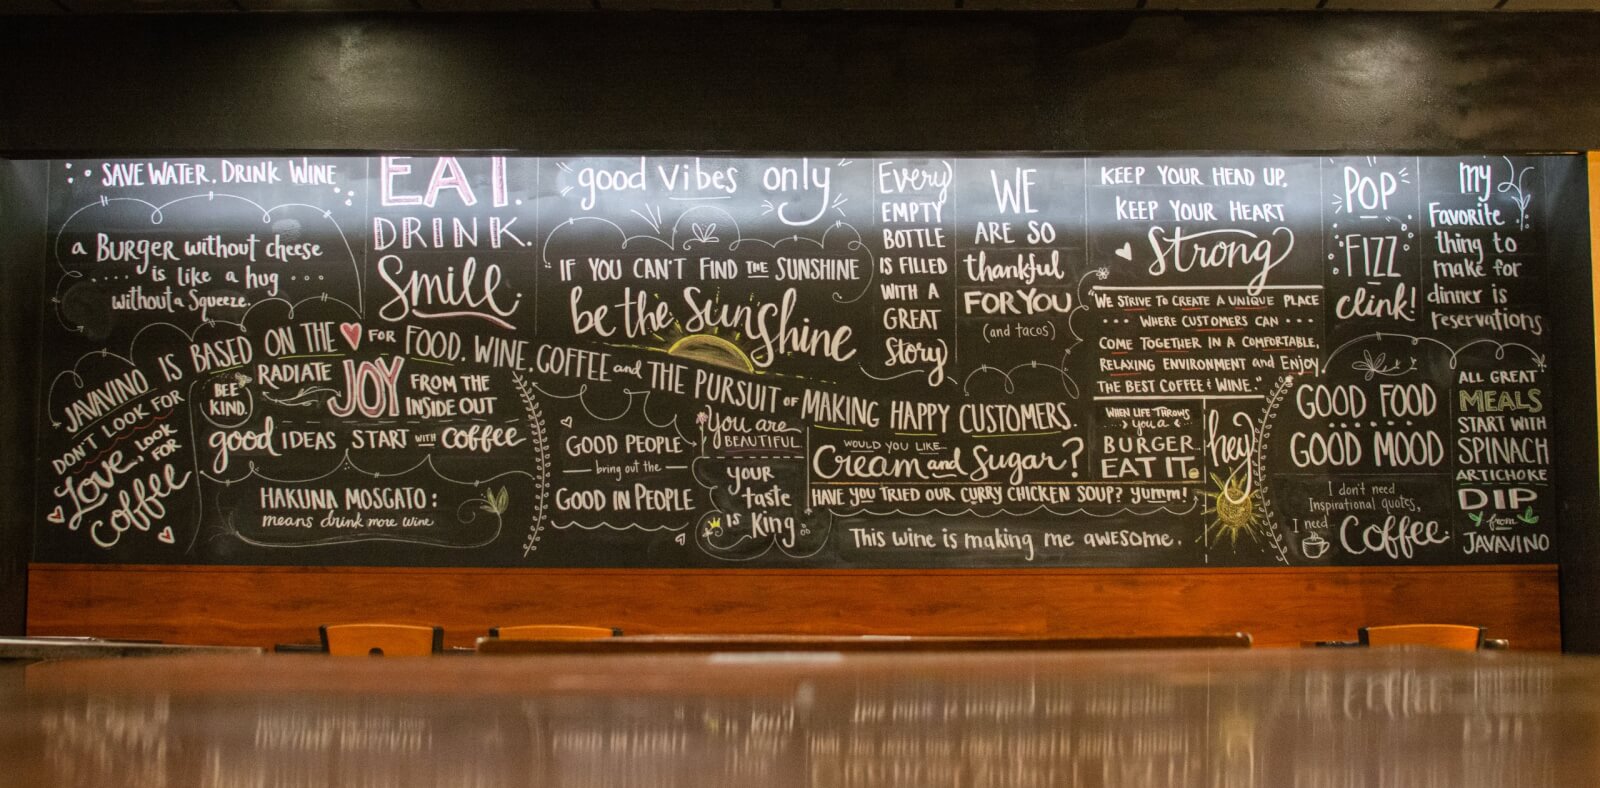 SAVE WATER. DRINK WINE
a BURGER without cheese
is like a hug
without a Squeeze.
EAT.
DRINK.
Smile.
good vibes only
IF YOU CAN'T FIND THE SUNSHINE
be the Sunshine
Every
EMPTY
BOTTLE
IS FILLED
WITH A
GREAT
Story
WE
ARE SO
thankful
FOR YOU
(and tacos)
KEEP YOUR HEAD UP,
KEEP YOUR HEART
Strong
"WE STRIVE TO CREATE A UNIQUE PLACE
WHERE CUSTOMERS CAN
COME TOGETHER IN A COMFORTABLE,
RELAXING ENVIRONMENT and ENJOY
THE BEST COFFEE & WINE."
POP
FIZZ
clink!
my
Favorite
thing to
make for
dinner is
reservations
JAVAVINO IS BASED ON THE ♥ FOR FOOD, WINE, COFFEE and THE PURSUIT OF MAKING HAPPY CUSTOMERS.
DON'T LOOK FOR
Love, LOOK
FOR
Coffee
BEE
KIND.
RADIATE JOY FROM THE
INSIDE OUT
good IDEAS START WITH coffee
HAKUNA MOSCATO:
means drink more wine
GOOD PEOPLE
bring out the
GOOD IN PEOPLE
You are
BEAUTIFUL
your
taste
is King
WOULD YOU LIKE...
Cream and Sugar?
HAVE YOU TRIED OUR CURRY CHICKEN SOUP? Yumm!
This wine is making me awesome.
WHEN LIFE THROWS
you a
BURGER...
EAT IT
hey
GOOD FOOD
GOOD MOOD
I don't need
Inspirational quotes,
I need
Coffee.
ALL GREAT
MEALS
START WITH
SPINACH
ARTICHOKE
DIP
from
JAVAVINO